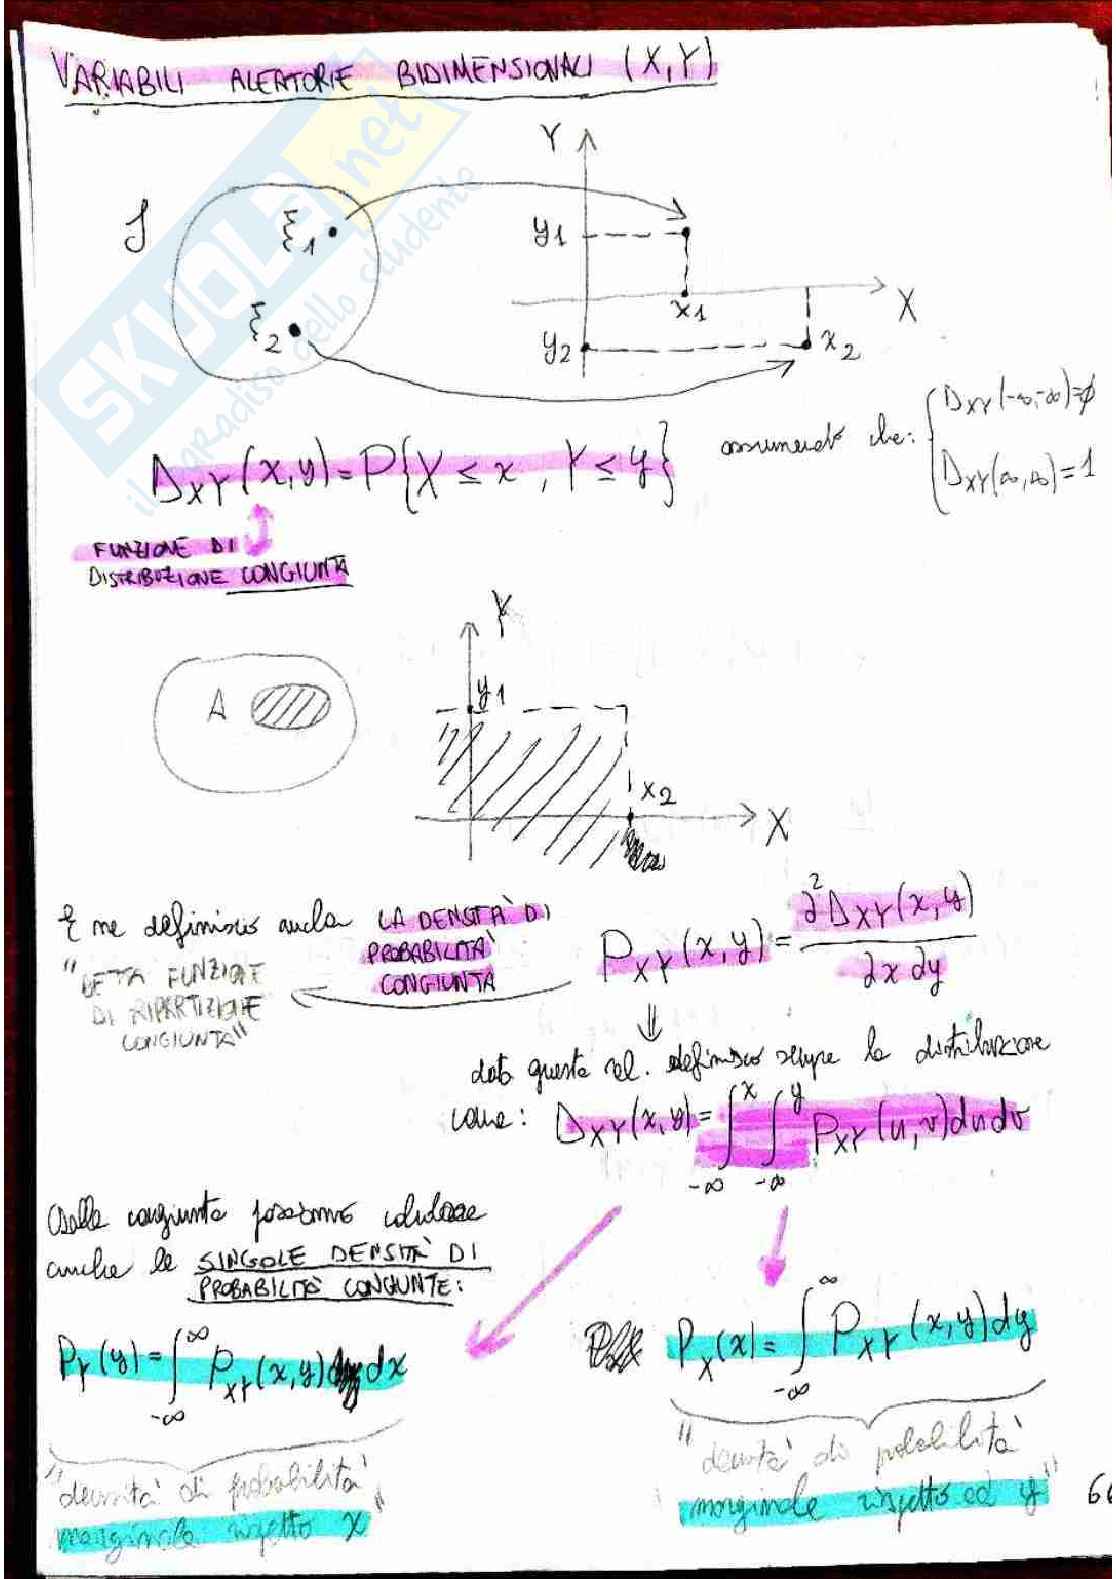 VARIABILI ALEATORIE BIDIMENSIONALI (X,Y)
SKUOLA.net
il paradiso dello studente
Y
ξ1
y1
x1
X
ξ2
y2
x2
D_XY(x,y)=P{X ≤ x, Y ≤ y}
assumendo che: { D_XY(-∞,-∞)=ϕ
D_XY(∞,∞)=1
FUNZIONE DI
DISTRIBUZIONE CONGIUNTA
Y
A
y1
x2
X
E ne definisco anche LA DENSITÀ DI
PROBABILITÀ
CONGIUNTA
P_XY(x,y)= ∂²D_XY(x,y) / ∂x ∂y
"DETTA FUNZIONE
DI RIPARTIZIONE
CONGIUNTA"
⇓
data questa rel. definisco sempre la distribuzione
come: D_XY(x,y)= ∫_{-∞}^{x} ∫_{-∞}^{y} P_XY(u,v)dudv
Dalla congiunta possiamo calcolare
anche le SINGOLE DENSITÀ DI
PROBABILITÀ CONGIUNTE:
P_Y(y)= ∫_{-∞}^{∞} P_XY(x,y) dx
"densità di probabilità
marginale rispetto x"
P_X(x)= ∫_{-∞}^{∞} P_XY(x,y)dy
"densità di probabilità
marginale rispetto ad y"